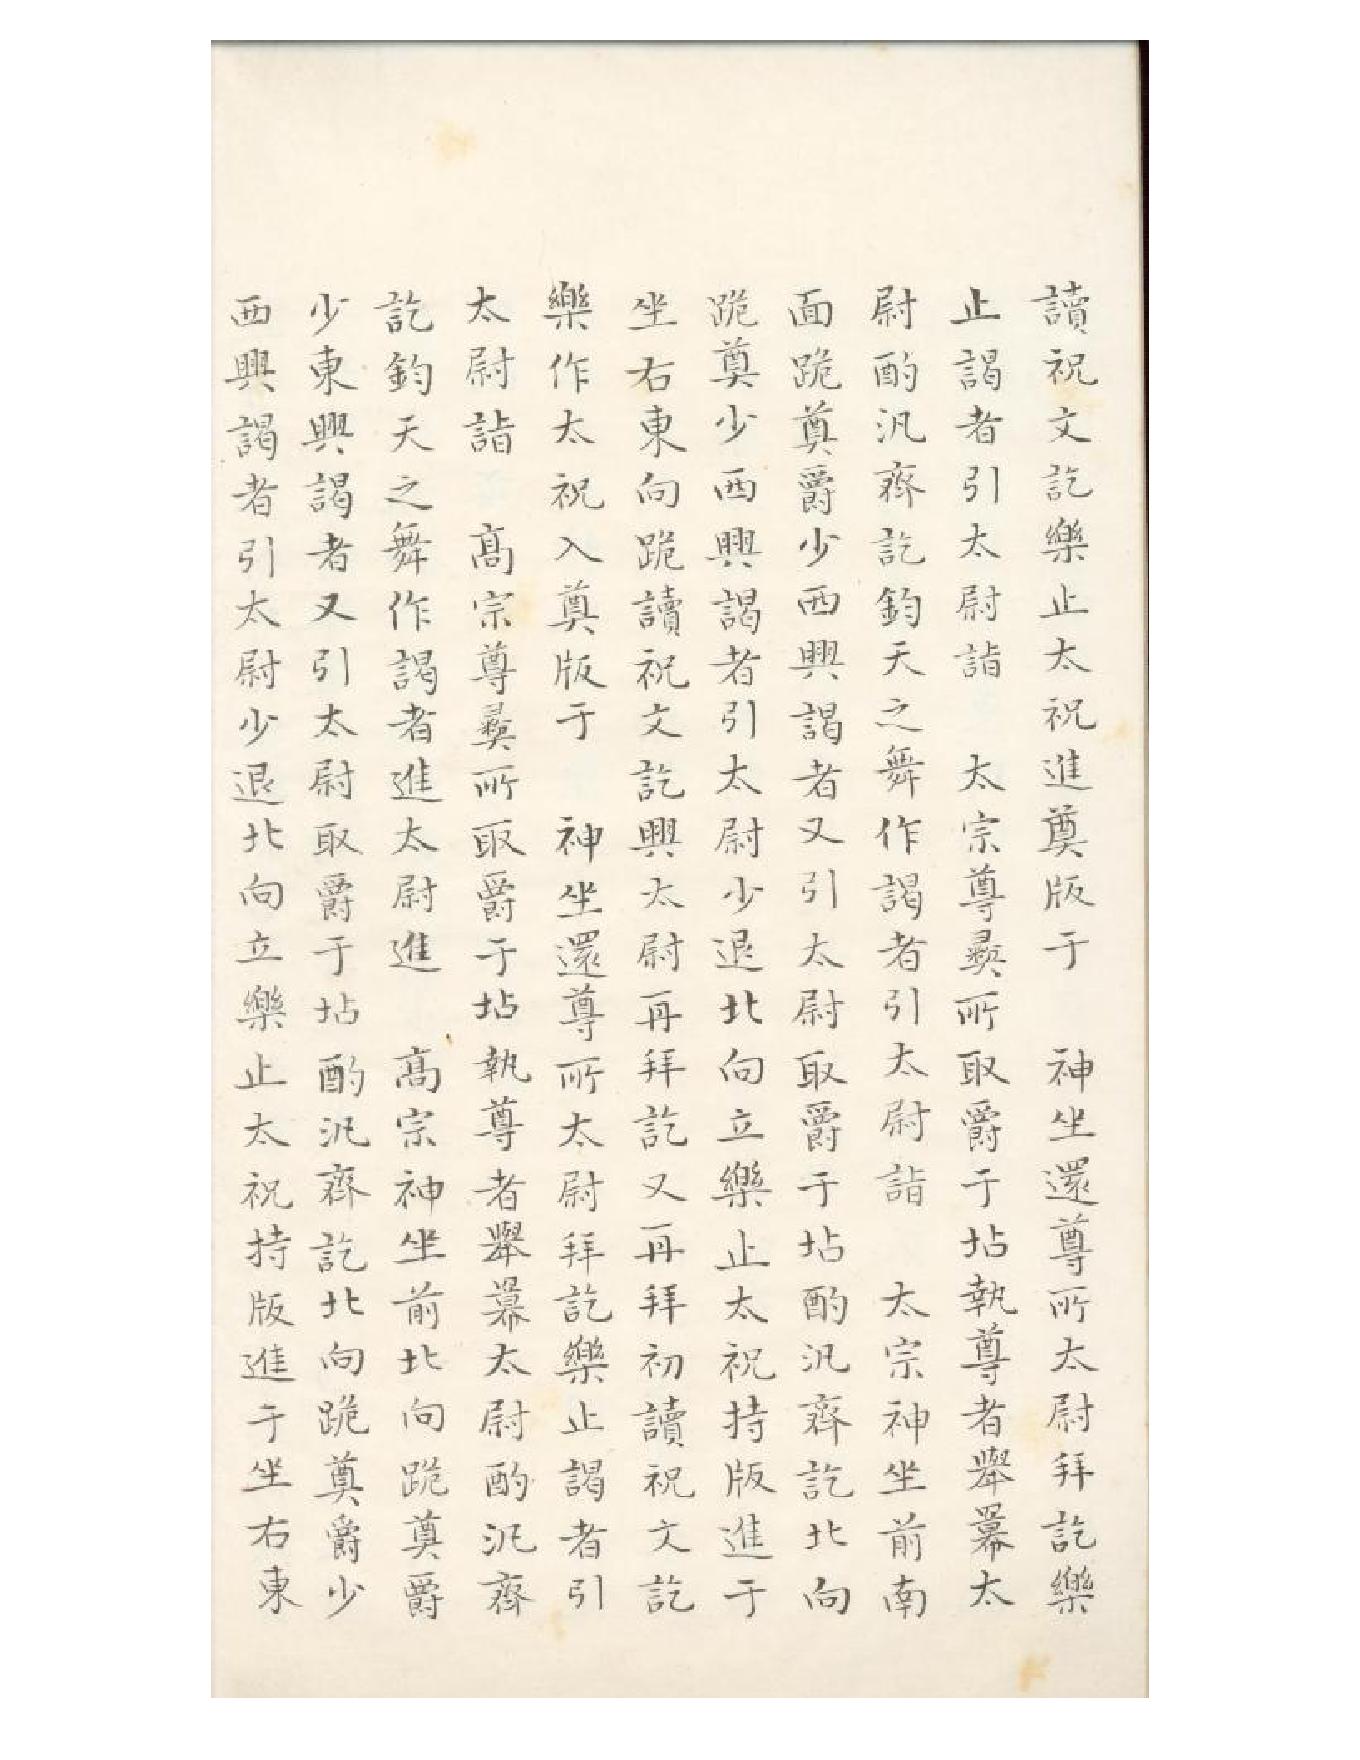 讀祝文訖樂止太祝進奠版于　神坐還尊所太尉拜訖樂
止謁者引太尉詣　太宗尊彞所取爵于坫執尊者舉冪太
尉酌汎齊訖鈞天之舞作謁者引太尉詣　太宗神坐前南
面跪奠爵少西興謁者又引太尉取爵于坫酌汎齊訖北向
跪奠少西興謁者引太尉少退北向立樂止太祝持版進于
坐右東向跪讀祝文訖興太尉再拜訖又再拜初讀祝文訖
樂作太祝入奠版于　神坐還尊所太尉拜訖樂止謁者引
太尉詣　髙宗尊彞所取爵于坫執尊者舉冪太尉酌汎齊
訖鈞天之舞作謁者進太尉進　髙宗神坐前北向跪奠爵
少東興謁者又引太尉取爵于坫酌汎齊訖北向跪奠爵少
西興謁者引太尉少退北向立樂止太祝持版進于坐右東